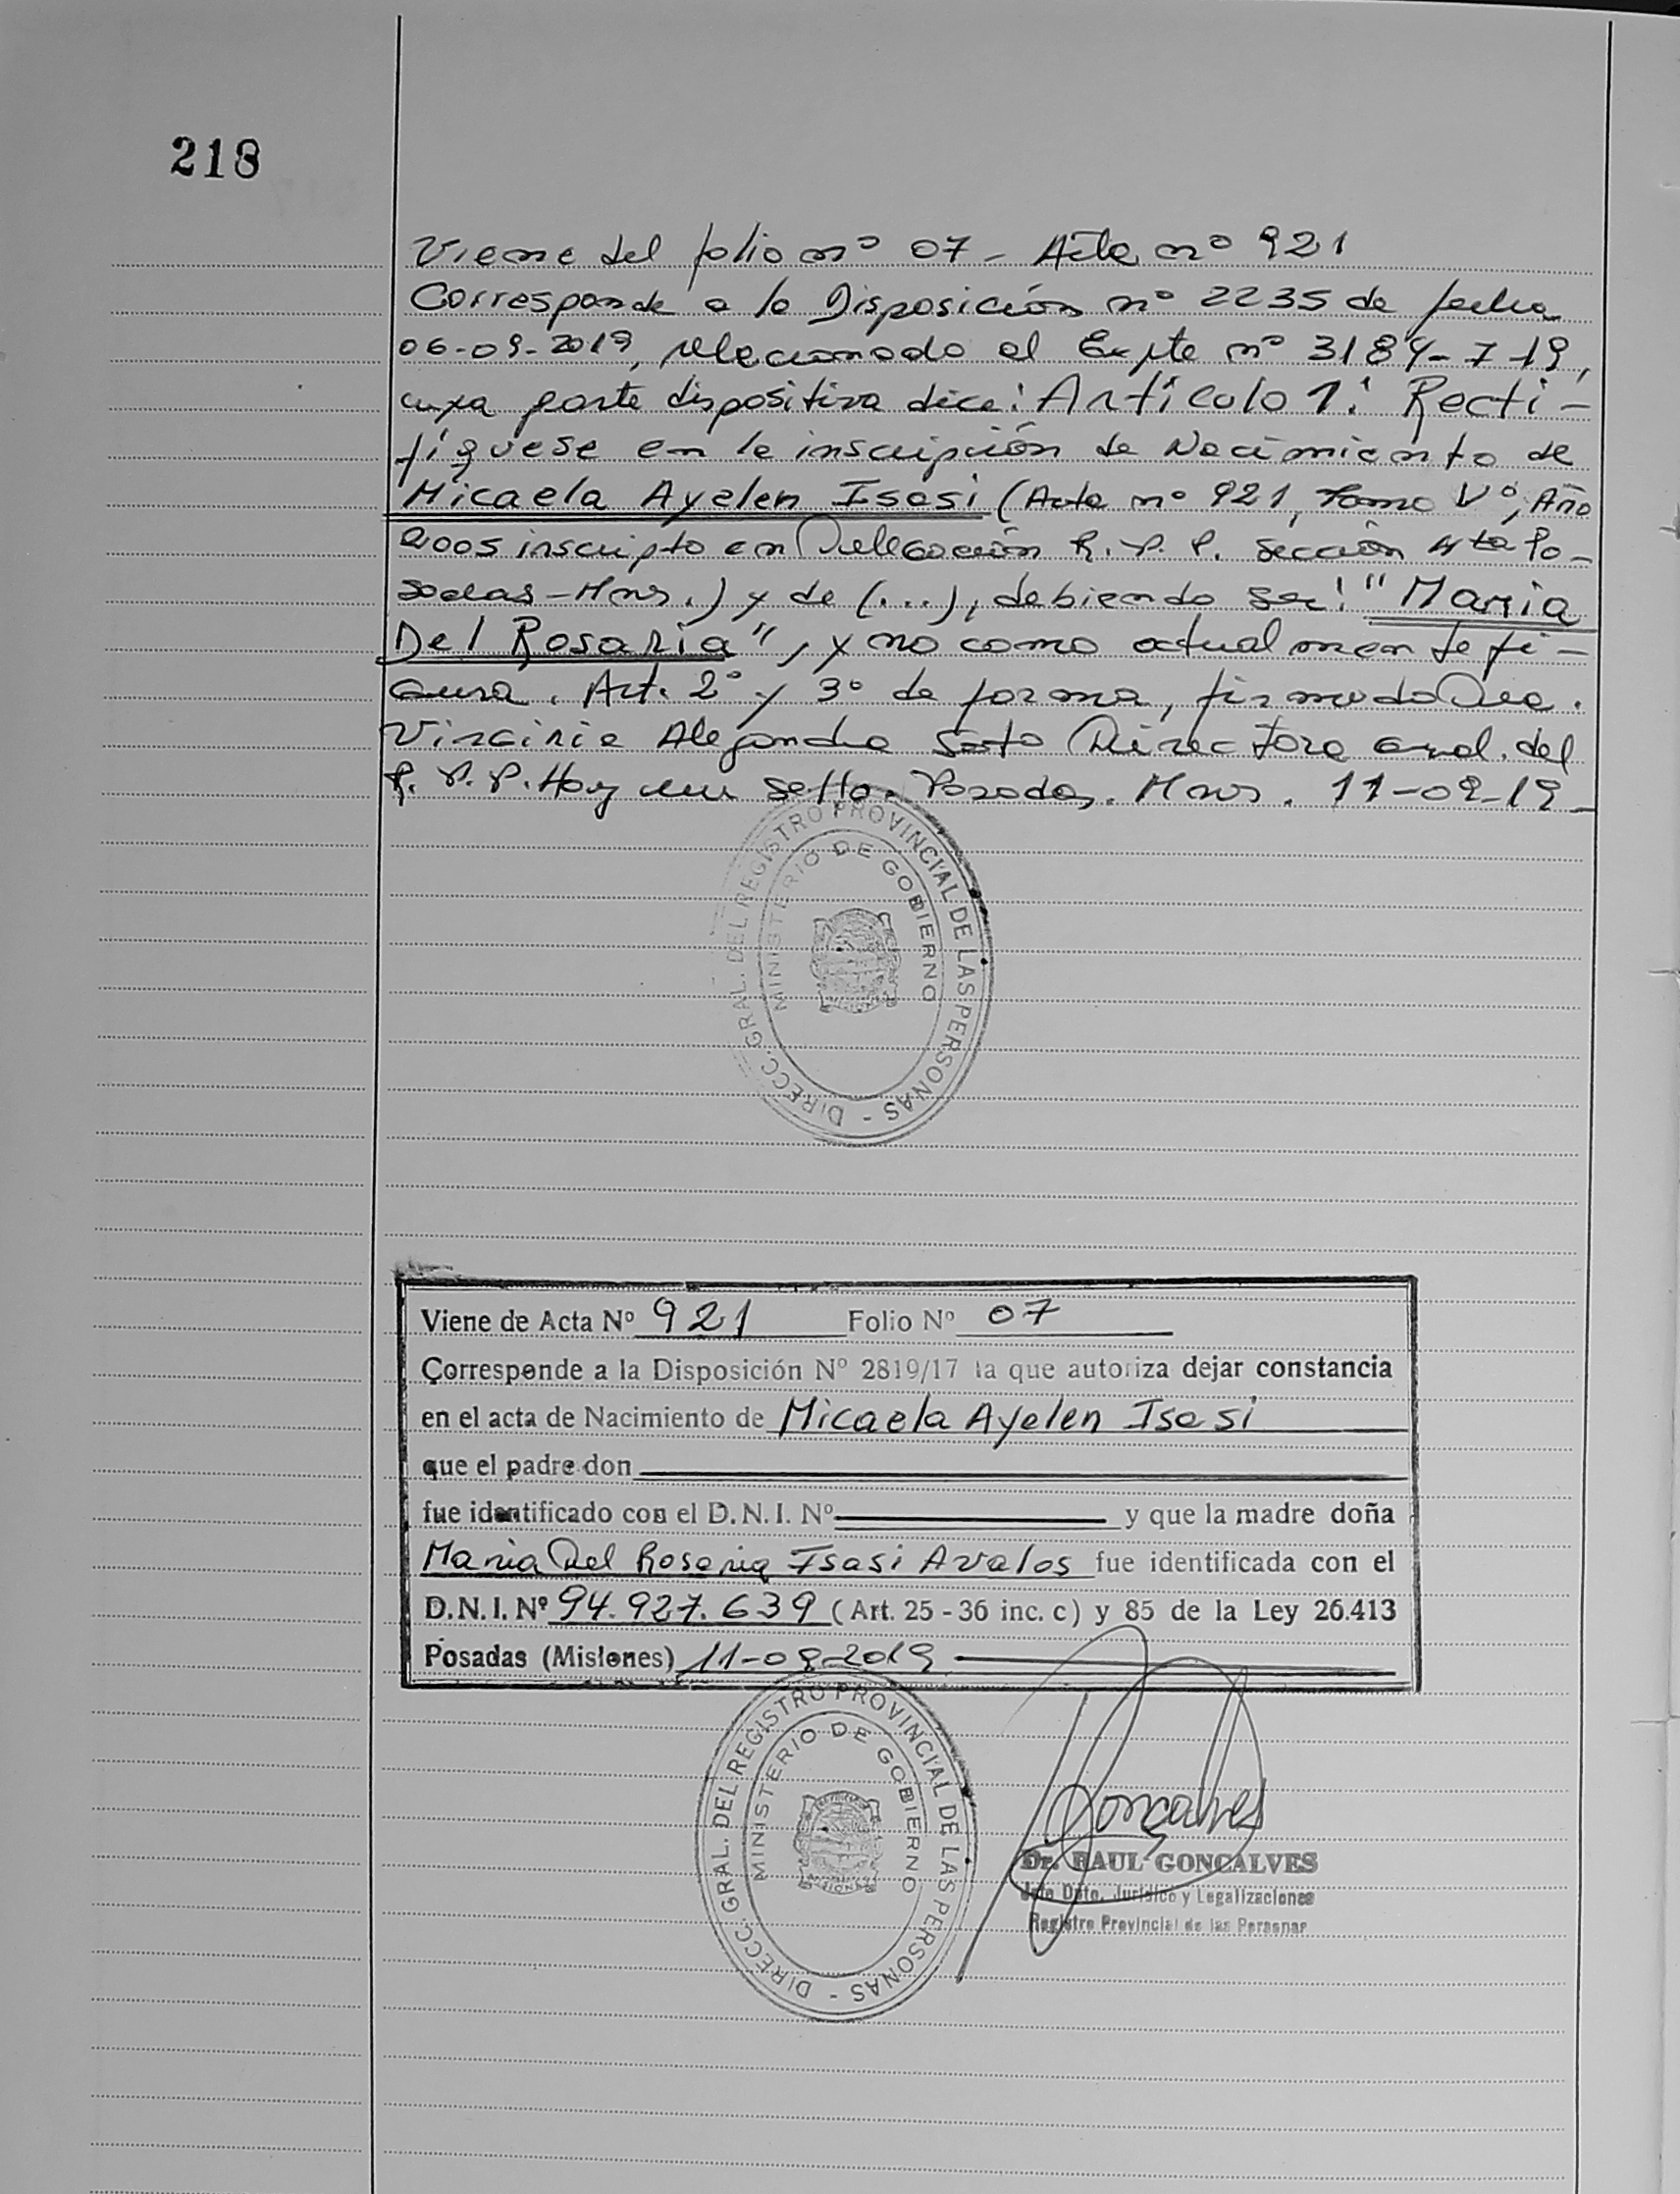 218
Viene del folio nº 07 - Acta nº 921
Corresponde a la Disposición nº 2235 de fecha
06-09-2019, relacionado al Expte nº 3184-7-19,
cuya parte dispositiva dice: Artículo 1: Recti-
fíquese en la inscripción de Nacimiento de
Micaela Ayelen Isasi (Acta nº 921, Tomo Vº, Año
2005 inscripto en Delegación R.P.P. Sección 4ta Po-
sadas-Mns.) y de (...), debiendo ser: "Maria
Del Rosaria", y no como actualmente fi-
gura. Art. 2º y 3º de forma, firmado Dra.
Virginia Alejandra Soto Directora Gral. del
R.P.P. Hay un sello. Posadas. Mns. 11-09-19-
DIRECC. GRAL. DEL REGISTRO PROVINCIAL DE LAS PERSONAS -
MINISTERIO DE GOBIERNO
Viene de Acta Nº 921 Folio Nº 07
Corresponde a la Disposición Nº 2819/17 la que autoriza dejar constancia
en el acta de Nacimiento de Micaela Ayelen Isasi
que el padre don
fue identificado con el D.N.I. Nº y que la madre doña
Maria Del Rosaria Isasi Avalos fue identificada con el
D.N.I. Nº 94.927.639 (Art. 25 - 36 inc. c) y 85 de la Ley 26.413
Posadas (Misiones) 11-09-2019
DIRECC. GRAL. DEL REGISTRO PROVINCIAL DE LAS PERSONAS -
MINISTERIO DE GOBIERNO
MISIONES
Gonçalves
Dr. RAUL GONCALVES
Jefe Dpto. Jurídico y Legalizaciones
Registro Provincial de las Personas